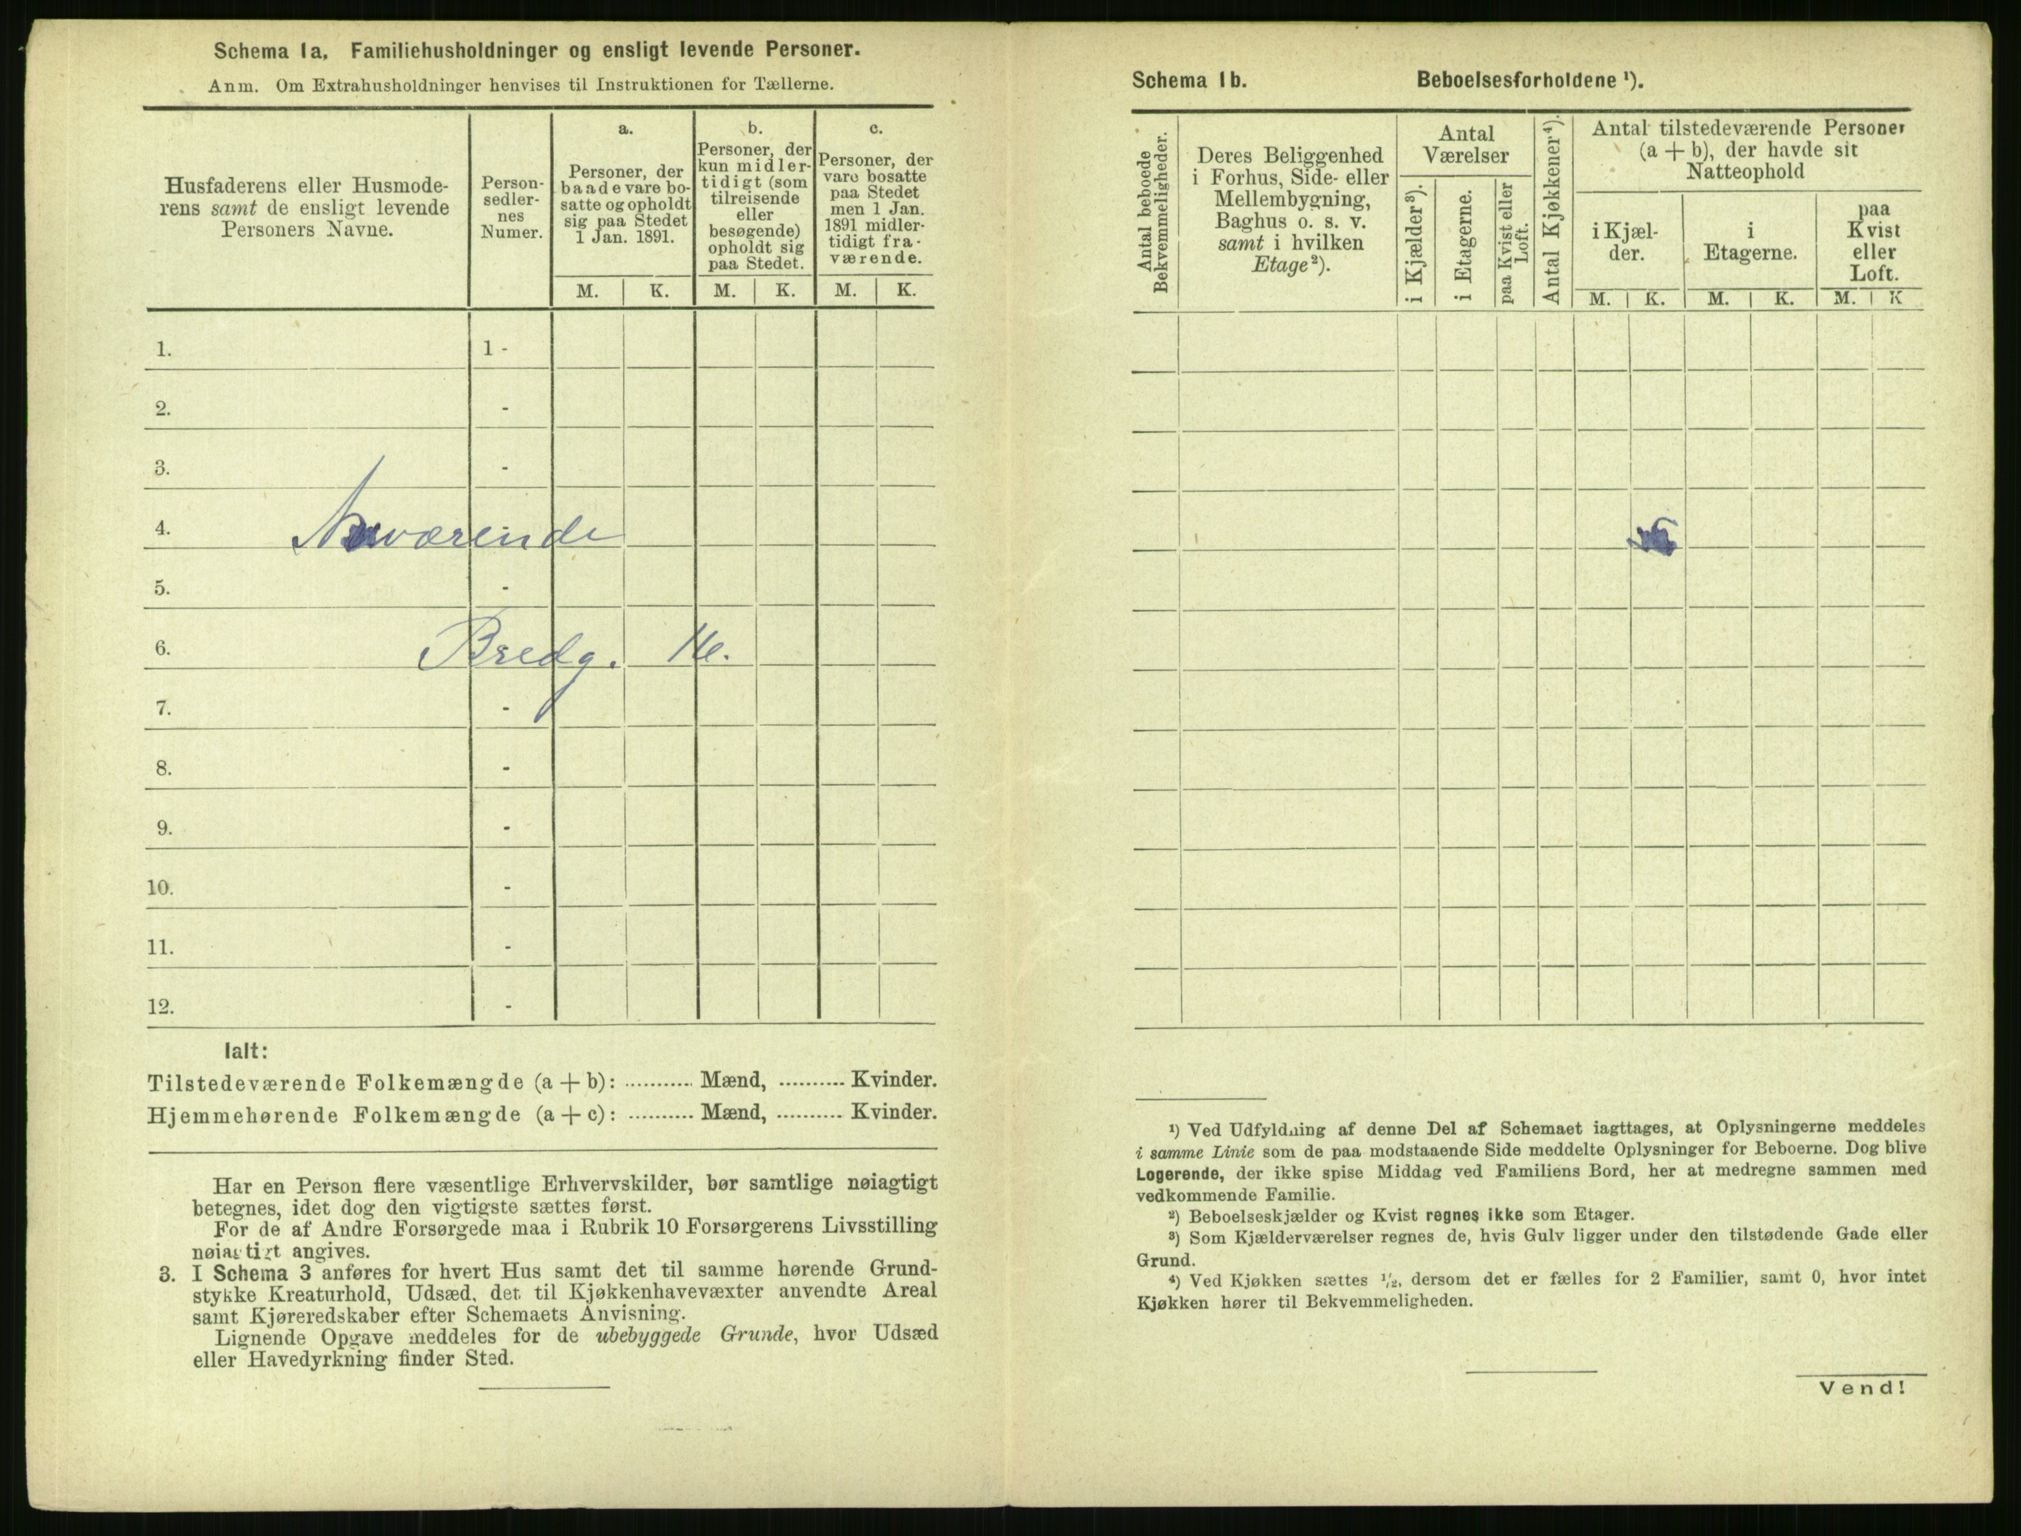 Schema 1a. Familiehusholdninger og ensligt levende Personer.
Anm. Om Extrahusholdninger henvises til Instruktionen for Tællerne.
Husfaderens eller Husmode-
rens samt de ensligt levende
Personers Navne.
Person-
sedler-
nes
Numer.
a.
Personer, der
baade vare bo-
satte og opholdt
sig paa Stedet
1 Jan. 1891.
b.
Personer, der
kun midler-
tidigt (som
tilreisende
eller
besøgende)
opholdt sig
paa Stedet.
c.
Personer, der
vare bosatte
paa Stedet
men 1 Jan.
1891 midler-
tidigt fra-
værende.
M. K. M. K. M. K.
1. 1 -
2. -
3. -
4. Nuværende
5. -
6. Bredg. 16.
7. -
8. -
9. -
10. -
11. -
12. -
Ialt:
Tilstedeværende Folkemængde (a + b): .......... Mænd, .......... Kvinder.
Hjemmehørende Folkemængde (a + c): .......... Mænd, .......... Kvinder.
Har en Person flere væsentlige Erhvervskilder, bør samtlige nøiagtigt
betegnes, idet dog den vigtigste sættes først.
For de af Andre Forsørgede maa i Rubrik 10 Forsørgerens Livsstilling
nøiagtigt angives.
3. I Schema 3 anføres for hvert Hus samt det til samme hørende Grund-
stykke Kreaturhold, Udsæd, det til Kjøkkenhavevæxter anvendte Areal
samt Kjøreredskaber efter Schemaets Anvisning.
Lignende Opgave meddeles for de ubebyggede Grunde, hvor Udsæd
eller Havedyrkning finder Sted.
Schema 1b. Beboelsesforholdene ¹).
Antal beboede
Bekvemmeligheder.
Deres Beliggenhed
i Forhus, Side- eller
Mellembygning,
Baghus o. s. v.
samt i hvilken
Etage²).
Antal
Værelser
i Kjælder³).
i Etagerne.
paa Kvist eller
Loft.
Antal Kjøkkener⁴).
Antal tilstedeværende Personer
(a + b), der havde sit
Natteophold
i Kjæl-
der.
i
Etagerne.
paa
Kvist
eller
Loft.
M. K. M. K. M. K
¹) Ved Udfyldning af denne Del af Schemaet iagttages, at Oplysningerne meddeles
i samme Linie som de paa modstaaende Side meddelte Oplysninger for Beboerne. Dog blive
Logerende, der ikke spise Middag ved Familiens Bord, her at medregne sammen med
vedkommende Familie.
²) Beboelseskjælder og Kvist regnes ikke som Etager.
³) Som Kjælderværelser regnes de, hvis Gulv ligger under den tilstødende Gade eller
Grund.
⁴) Ved Kjøkken sættes ¹/₂, dersom det er fælles for 2 Familier, samt 0, hvor intet
Kjøkken hører til Bekvemmeligheden.
Vend!